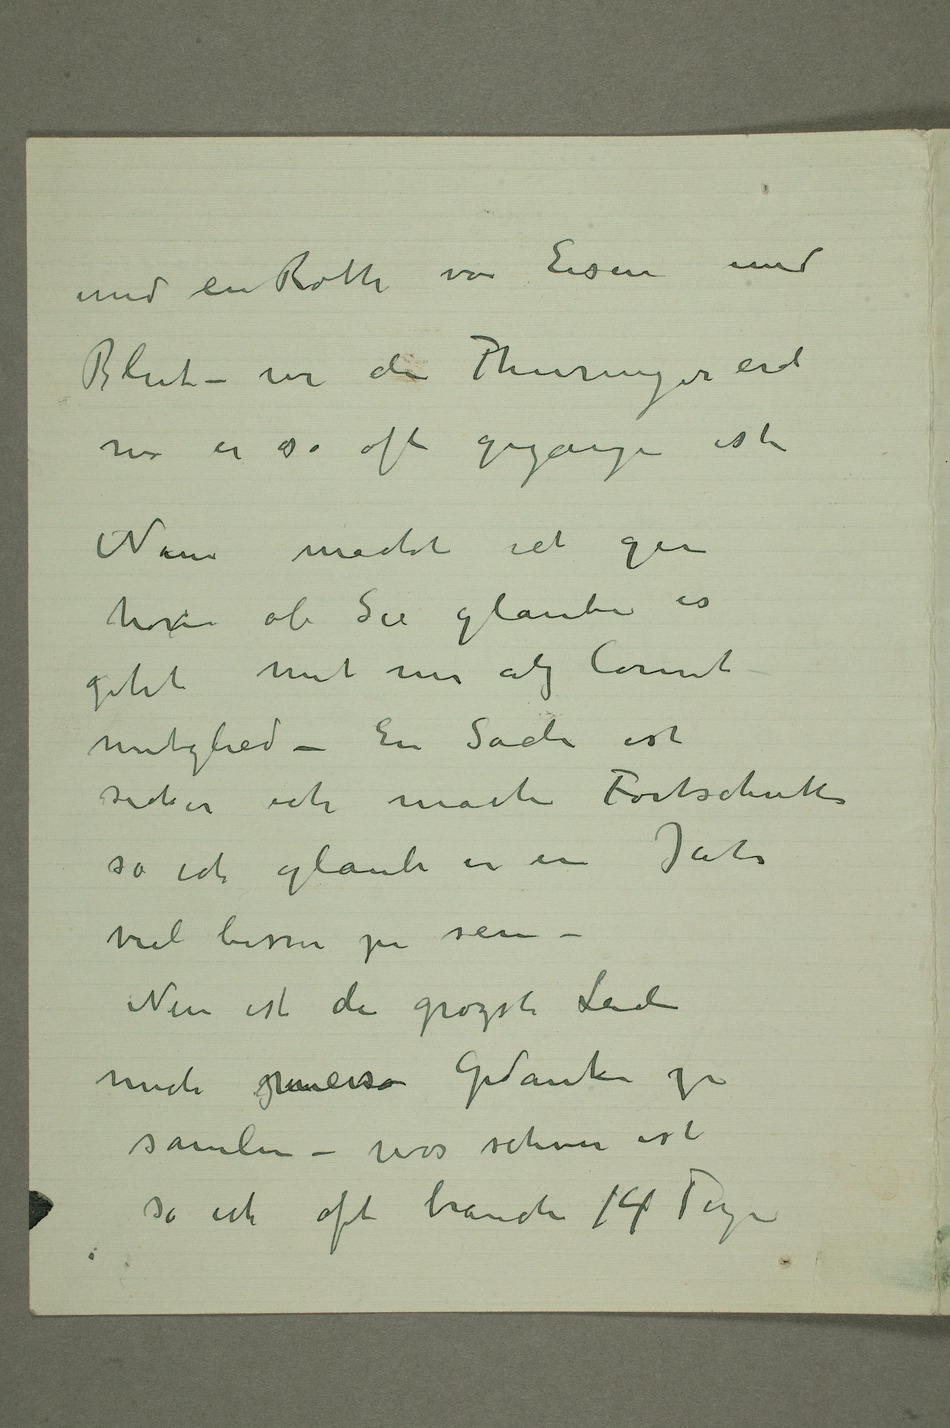 und ein Rothe von Eisen und
Blut – wie die Thuringer erd
wo er so oft gegangen ist
Nun möcht ich gern
horen ob Sie glauben es
geht mit mir als Comit-
mitglied – Ein Sache ist
sicker ich mache Fortschritte
so ich glaube in ein Jahr
viel besser zu sein –
Nun ist die grozste Leiden
mich Gedanken zu
samlen – was schwer ist
so ich oft brauche 14 Tage